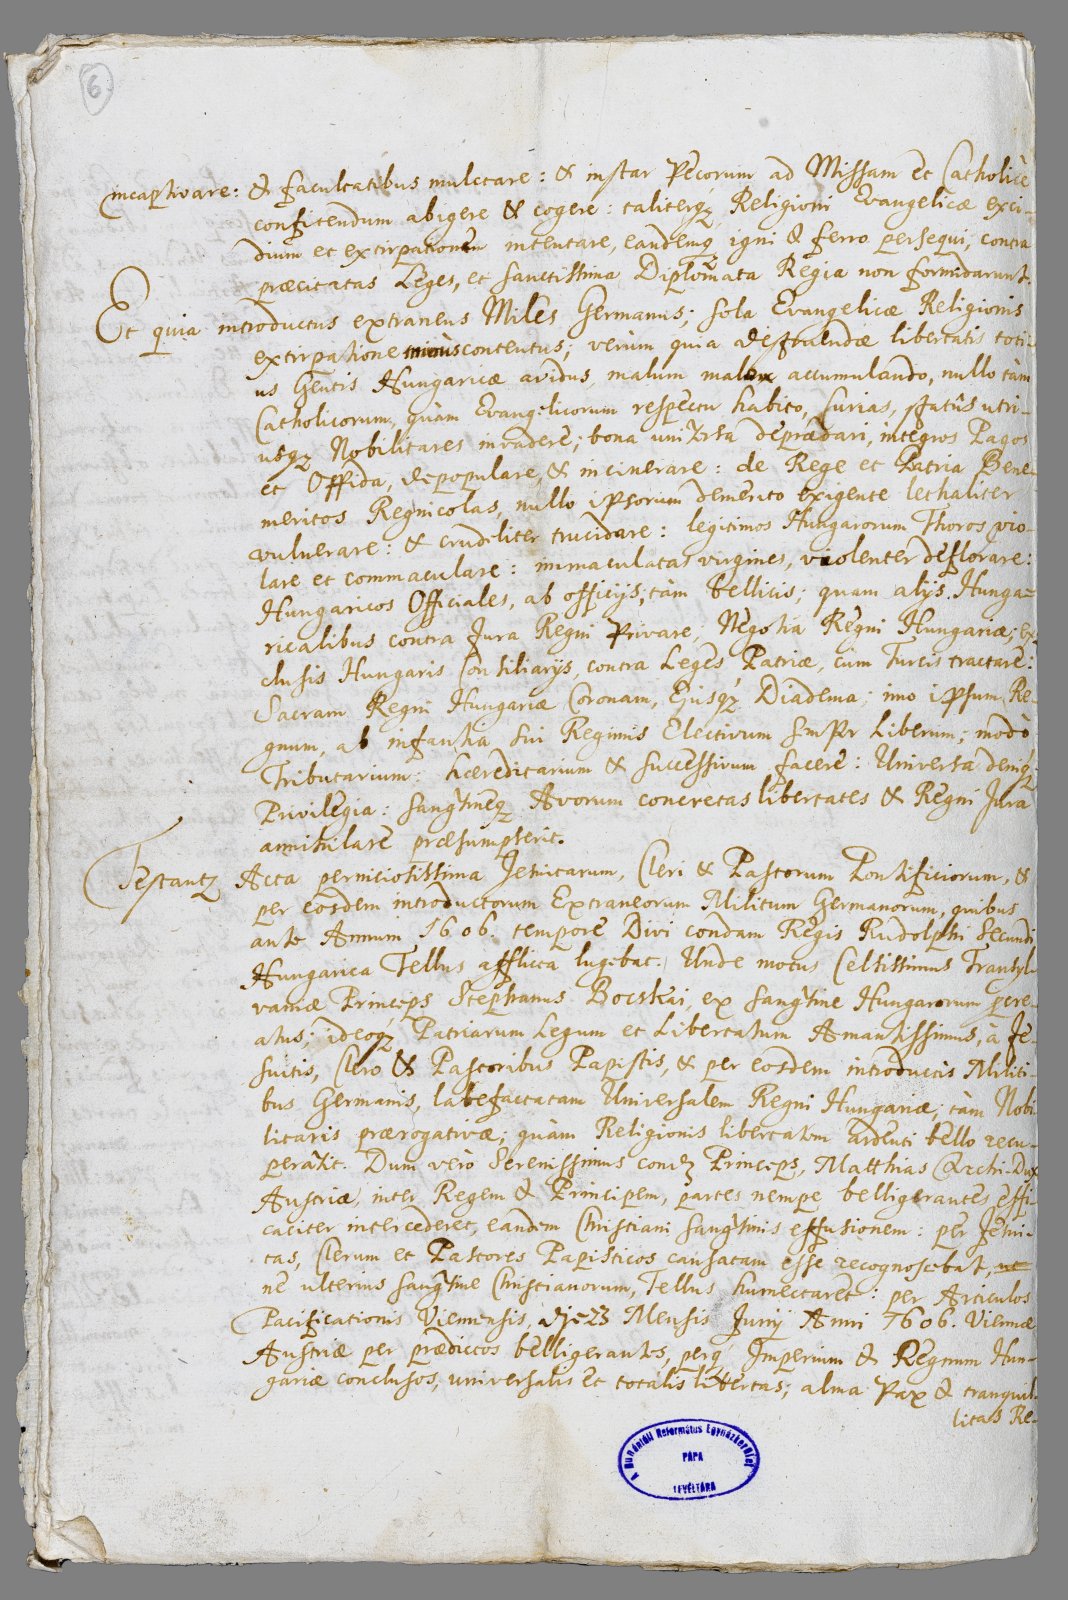 6
incaptivare: & facultatibus mulctare: & instar Pecorum ad Missam et Catholicè
confitendum abigere & cogere: taliterq; Religioni Evangelicæ exci-
dium et extirpationem intentare, eandemq; igni & ferro persequi, contra
præcitatas Leges, et sanctissima Diplomata Regia non formidarunt.
Et quia introductus extraneus Miles Germanus; sola Evangelicæ Religionis
extirpatione minùs contentus; verùm quia defraudæ libertatis toti-
us Gentis Hungaricæ avidus, malum malo accumulando, nullo tàm
Catholicorum, quàm Evangelicorum respectu habito, Curias, statûs utri-
usq; Nobilitares invadere; bona universa deprædari, integros Pagos
et Oppida, depopulare, & incinerare: de Rege et Patria Bene-
meritos Regnicolas, nullo ipsorum demerito exigente lethaliter
vulnerare: & crudeliter trucidare: legitimos Hungarorum Thoros vio-
lare et commaculare: immaculatas virgines, violenter deflorare:
Hungaricos Officiales, ab officijs, tàm bellicis; quam alijs Hunga-
ricalibus contra Jura Regni Privare, Negotia Regni Hungariæ; ex-
clusis Hungaris Consiliarijs, contra Leges Patriæ, cùm Turcis tractare:
Sacram Regni Hungariæ Coronam, Ejusq; Diadema; imo ipsum Re-
gnum, ab infantia sui Regiminis Electivum semper Liberum; modò
Tributarium: hæreditarium & successivum facere: Universa deniq;
Privilegia: sangvineq; Avorum concretas libertates & Regni Jura
annihilare præsumpserit.
Testantur Acta perniciosissima Jesuitarum, Cleri & Pastorum Pontificiorum, &
per eosdem introductorum Extraneorum Militum Germanorum, quibus
ante Annum 1606. tempore Divi condam Regis Rudolphi Secundi
Hungarica Tellus afflicta lugebat. Unde motus Celsissimus Transyl-
vaniæ Princeps Stephanus Bocskai, ex sangvine Hungarorum pere-
atus; ideoq; Patriarum Legum et Libertatum Amantissimus, à Je-
suitis, Clero & Pastoribus Papistis, & per eosdem introductis Militi-
bus Germanis, labefactatam Universalem Regni Hungariæ; tàm Nobi-
litaris prærogativæ; quàm Religionis libertatem ardenti bello recu-
peravit. Dum verò Serenissimus cond. Princeps, Matthias Archi-Dux
Austriæ, inter Regem & Principem, partes nempe belligerantes effi-
caciter intercederet, eandem Christiani sangvinis effusionem: per Jesui-
tas, Clerum et Pastores Papisticos causatam esse recognoscebat, ut
nè ulterius sangvine Christianorum, Tellus humectaret: per Articulos
Pacificationis Viennensis, die 23 Mensis Junij Anni 1606. Viennæ
Austriæ per prædictos belligerantes, perq; Imperium & Regnum Hun-
gariæ conclusos, universalis et totalis libertas; alma Pax & tranquil-
litas Re-
A Dunántúli Református Egyházkerület
PÁPA
LEVÉLTÁRA